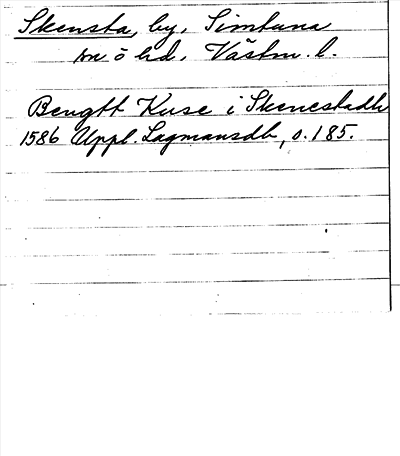 Skensta, by, Simtuna
sn o hd, Västm. l.
Bengtt Kuse i Skenestadh
1586 Uppl. Lagmansdb, s. 185.